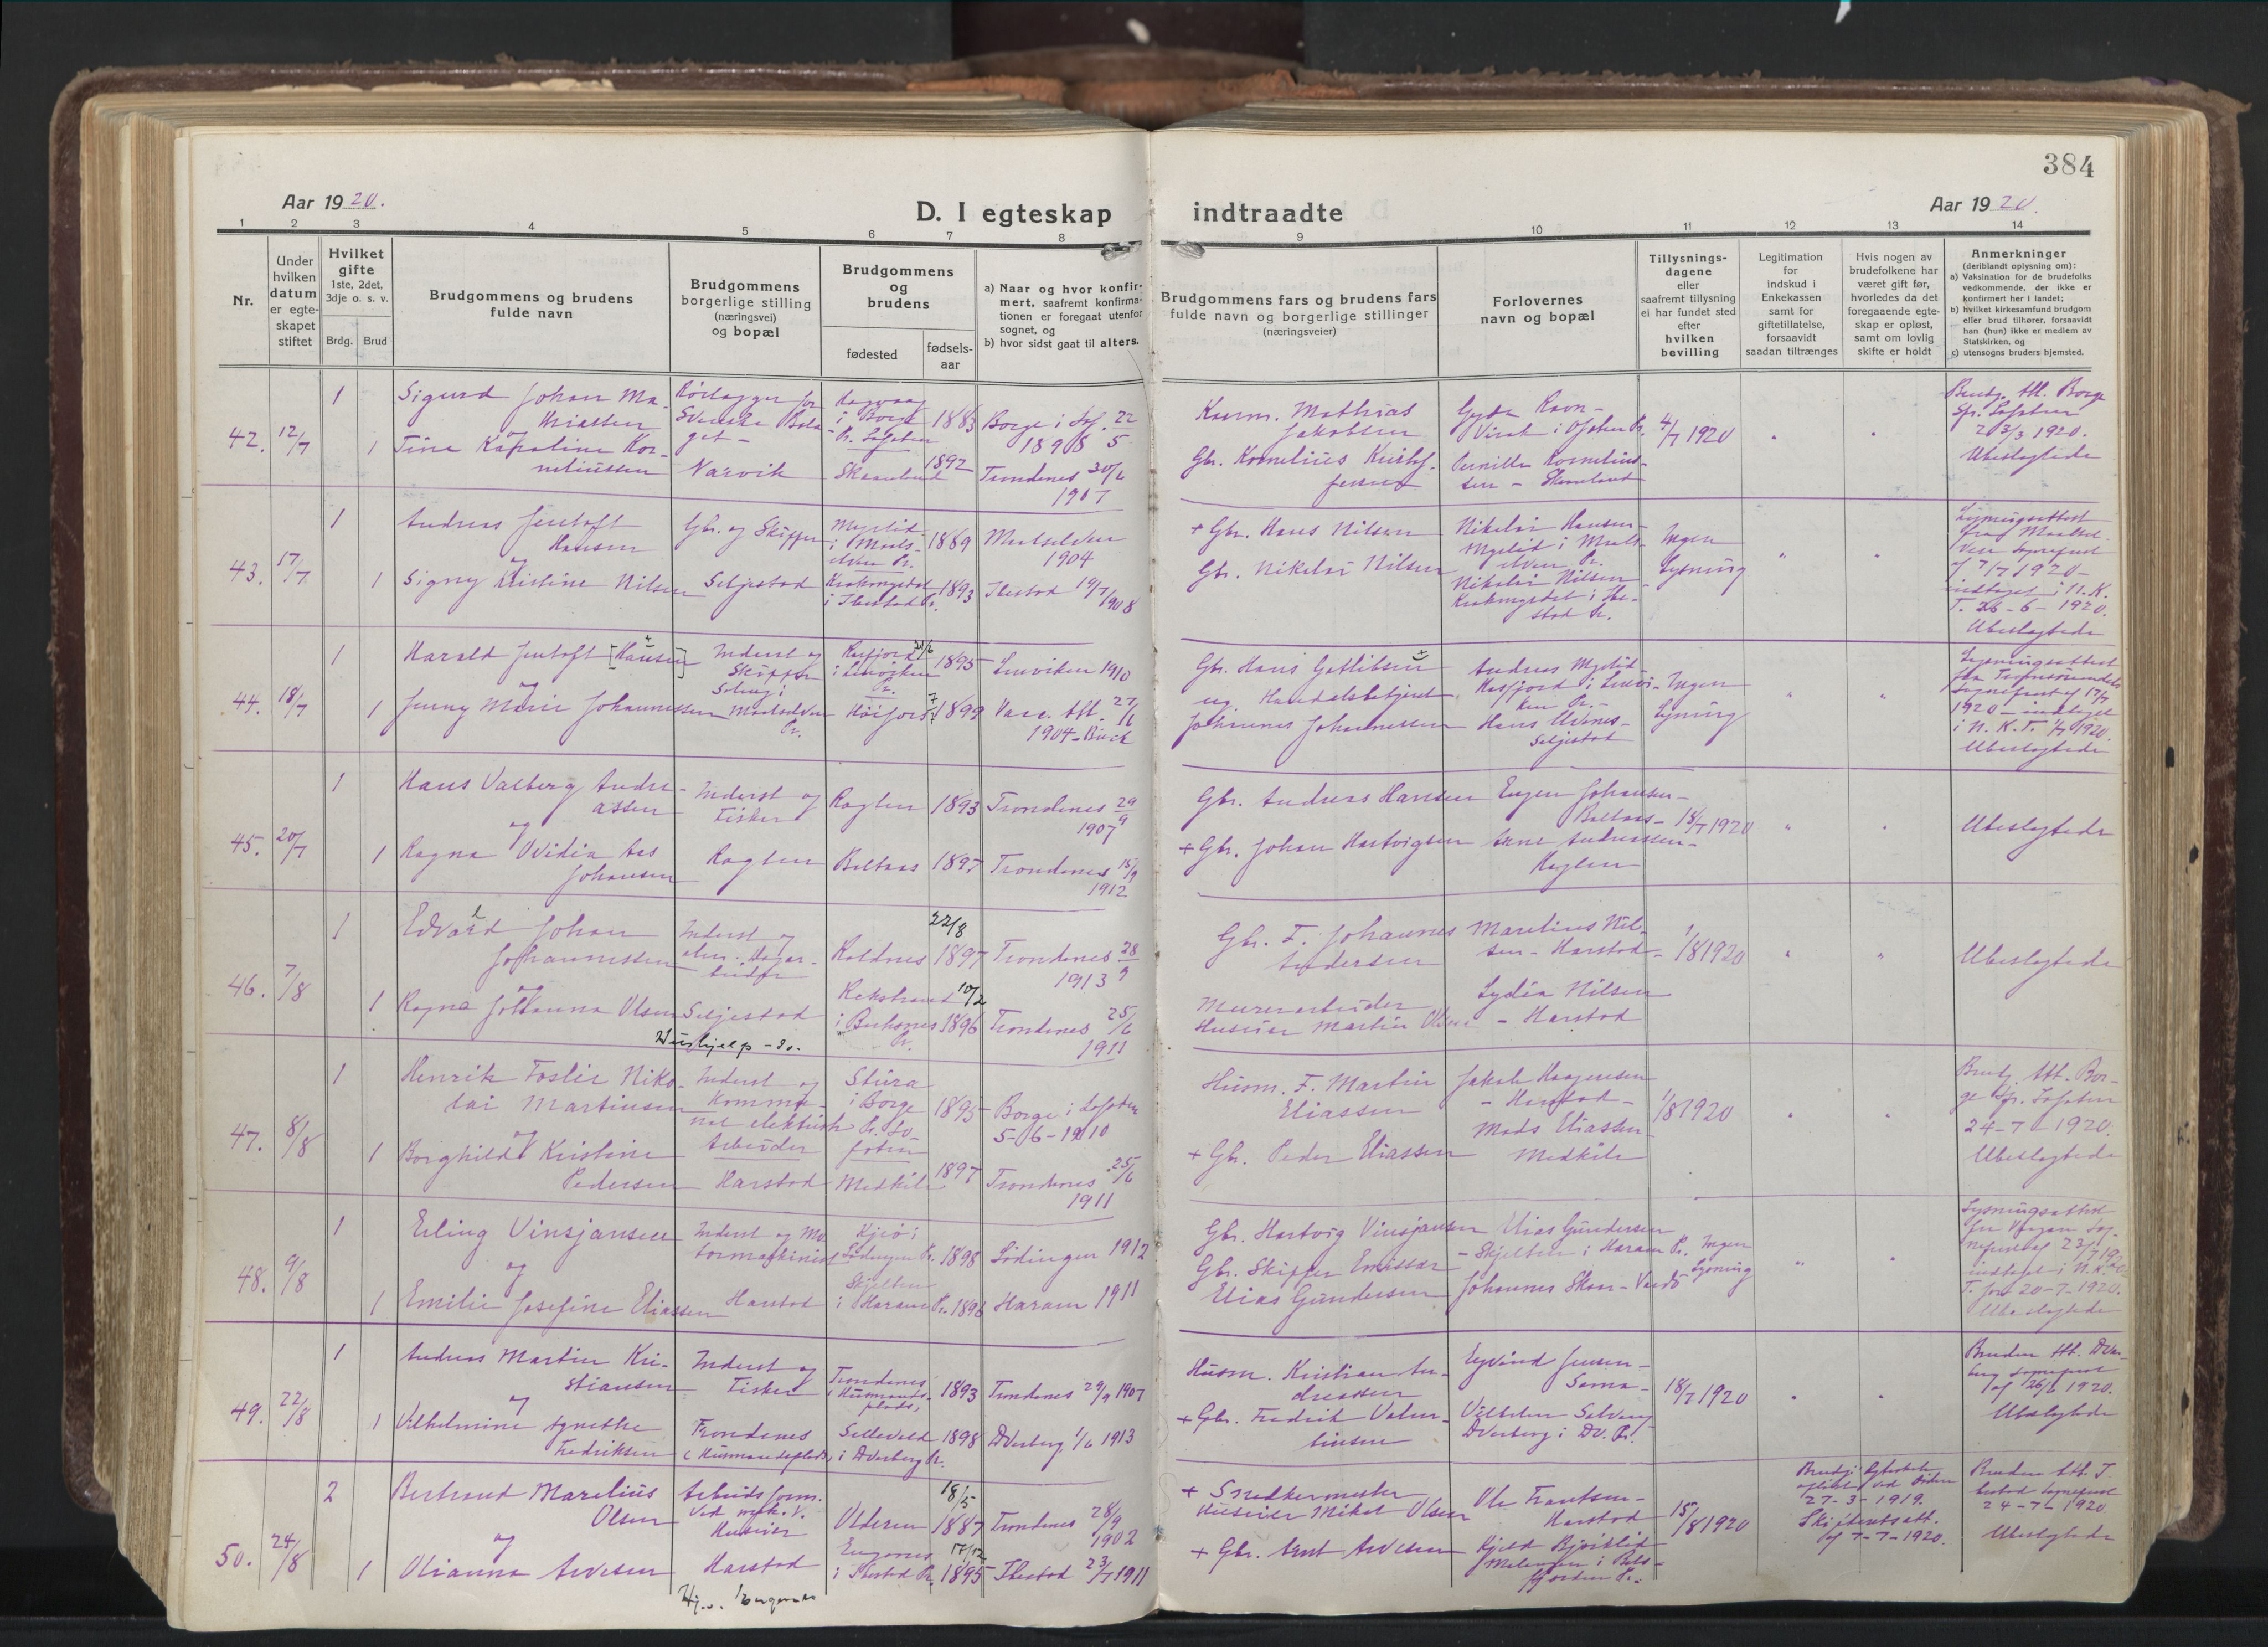 384
Aar 1920.
D. I egteskap indtraadte
Aar 1920.
1 2 3 4 5 6 7 8 9 10 11 12 13 14
Nr.
Under
hvilken
datum
er egte-
skapet
stiftet
Hvilket
gifte
1ste, 2det,
3dje o. s. v.
Brdg. Brud
Brudgommens og brudens
fulde navn
Brudgommens
borgerlige stilling
(næringsvei)
og bopæl
Brudgommens
og
brudens
fødested
fødsels-
aar
a) Naar og hvor konfir-
mert, saafremt konfirma-
tionen er foregaat utenfor
sognet, og
b) hvor sidst gaat til alters.
Brudgommens fars og brudens fars
fulde navn og borgerlige stillinger
(næringsveier)
Forlovernes
navn og bopæl
Tillysnings-
dagene
eller
saafremt tillysning
ei har fundet sted
efter
hvilken
bevilling
Legitimation
for
indskud i
Enkekassen
samt for
giftetillatelse,
forsaavidt
saadan tiltrænges
Hvis nogen av
brudefolkene har
været gift før,
hvorledes da det
foregaaende egte-
skap er opløst,
samt om lovlig
skifte er holdt
Anmerkninger
(deriblandt oplysning om):
a) Vaksination for de brudefolks
vedkommende, der ikke er
konfirmert her i landet;
b) hvilket kirkesamfund brudgom
eller brud tilhører, forsaavidt
han (hun) ikke er medlem av
Statskirken, og
c) utensogns bruders hjemsted.
42. 12/7
1
1
Sigurd Johan Ma-
thiassen
og
Tina Kapraline Kor-
neliussen
Rørlægger for
Svenske Bola-
get -
Narvik
i Borge
Pr. Lofoten
1883
Skaanland
1892
Borge i Lof. 22/5
1898
Trondenes 30/6
1907
Kaarm. Mathias
Jakobsen
Gbr. Kornelius Kristof-
fersen
Gyda Ravn-
Virak i Ofoten Pr.
Pernille Kornelius-
sen - Skaanland
4/7 1920
Brudg. Att. Borge
Spr. Lofoten
20 3/3 1920.
Ubeslegtede
43. 17/7
1
1
Andreas Jentoft
Hansen
og
Signy Kristine Nilsen
Gbr. og Skipper
Seljestad
Myrlid
i Maals-
elven Pr.
1889
Krakmyrdal
i Ibestad Pr.
1893
Maalselven
1904
Ibestad 19/7 1908
+ Gbr. Hans Nilsen
Gbr. Nikolai Nilsen
Nikolai Hansen-
Myrlid i Maals-
elven Pr.
Nikolai Nilsen
Krakmyrdal i Ibe-
stad Pr.
Ingen
Lysning
Lysningsattest
fra Maalsel-
ven sognepræst
af 7/7 1920 -
indtaget i N. K.
T. 26 - 6 - 1920.
Ubeslegtede
44. 18/7
1
1
Harald Jentoft [Hansen]
og
Jenny Marie Johannessen
Inderst og
Skipper
Solveg i
Maalselven
Pr.
Kasfjord
i Lenviken
Pr.
21/6
1895
Høifjord
1899
Lenviken 1910
Vara. Att. 27/6
1904 - Birch
Gbr. Hans Gotlibsen
ug. Handelsbetjent
Johannes Johannessen
Andreas Myrlid
Kasfjord i Lenvi-
ken Pr. -
Hans Udnes -
Seljestad
Ingen
Lysning
Lysningsattest
fra
sognepræst af 17/7
1920 - indtaget
i N. K. T. 1/7 1920.
Ubeslegtede
45. 20/7
1
1
Hans Valberg Andre-
assen
og
Ragna Ovidia Aas
Johansen
Inderst og
Fisker
Røglen
Røglen 1893
Baltaas 1897
Trondenes 29/9
1907
Trondenes 15/9
1912
Gbr. Andreas Hansen
+ Gbr. Johan Hartvigsen
Eugen Johansen-
Baltaas -
Arne Andreassen -
Røglen
18/7 1920
Ubeslegtede
46. 7/8
1
1
Edvard Johan
Johannessen
og
Ragna Johanna Olsen
Inderst og
Seljestad
Hushjelp - do.
22/8
Raldnes 1897
Rekstrand 10/2
i Buksnes 1896
Pr.
Trondenes 28/9
1913
Trondenes 25/6
1911
Gbr. F. Johannes
Andersen
Murerarbeider
Huseier Martin Olsen
Marelius Nil-
sen - Harstad -
Lydia Nilsen
- Harstad
1/8 1920
Ubeslegtede
47. 8/8
1
1
Henrik Foslie Niko-
lai Martinsen
og
Borghild Kristine
Pedersen
Inderst og
Kommu-
nal elektrisk
Arbeider
Harstad
Stura
i Borge
Pr. Lo-
foten
1895
Medkila
1897
Borge i Lofoten
5 - 6 - 1910
Trondenes 25/6
1911
Husm. F. Martin
Eliassen
+ Gbr. Peder Eliassen
Jakob Haagensen
- Harstad -
Mads Eliassen
Medkila
1/8 1920
Brudg. Att. Bor-
ge Spr. Lofoten
24 - 7 - 1920.
Ubeslegtede
48. 9/8
1
1
Erling Vinsjansen
og
Emilie Josefine Eliassen
Inderst og Mo-
tormaskinist
Harstad
Kjeø i
Lødingen Pr. 1898
Skjelten
i Haram Pr. 1896
Lødingen 1912
Haram 1911
Gbr. Hartvig Vinsjansen
Gbr. Skipper Emissær
Elias Gundersen
Elias Gundersen
- Skjelten i Haram Pr.
Johannes Skaar - Vardø
Ingen
Lysning
Lysningsattest
fra Vaagan Sog-
nepræst af 23/7 1920
indtaget i N. K.
T. for 20 - 7 - 1920.
Ubeslegtede
49. 22/8
1
1
Andreas Martin Kri-
stiansen
og
Vilhelmine Agnethe
Fredriksen
Inderst og
Fisker
Trondenes
(Husmandsplads)
Trondenes
i Husmands-
plads,
1893
Selleveld
i Dverberg Pr.
1898
Trondenes 29/9 1907
Dverberg 1/6 1913
Husm. Kristian An-
dreassen
+ Gbr. Fredrik Valen-
tinsen
Eyvind Jensen -
Sama -
Vilhelm Solvang
Dverberg i Dv. Pr.
18/7 1920
Bruden Att. Dver-
berg sognepræst
af 26/6 1920.
Ubeslegtede
50. 24/8
2
1
Bertrand Marelius
Olsen
og
Olianna Arvesen
Arbeidsform.
ved mek. V.
Huseier
Harstad
18/5
Olderen 1887
17/12
i Ibestad Pr. 1895
Trondenes 28/9
1902
Ibestad 23/7 1911
+ Snedkermester
Huseier Mikal Olsen
+ Gbr. Arnt Arvesen
Ole Frantsen -
Harstad
Kjeld Bjørklid
i Bals-
fjorden Pr.
15/8 1920
Brudg. Egteskab
opløst ved døden
27 - 3 - 1919.
Skifteretsatt.
af 7 - 7 - 1920.
Bruden Att. I-
bestad sognepræst
24 - 7 - 1920
Ubeslegtede